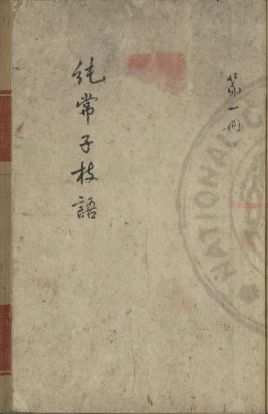 第一冊
純常子枝語
NATIONAL